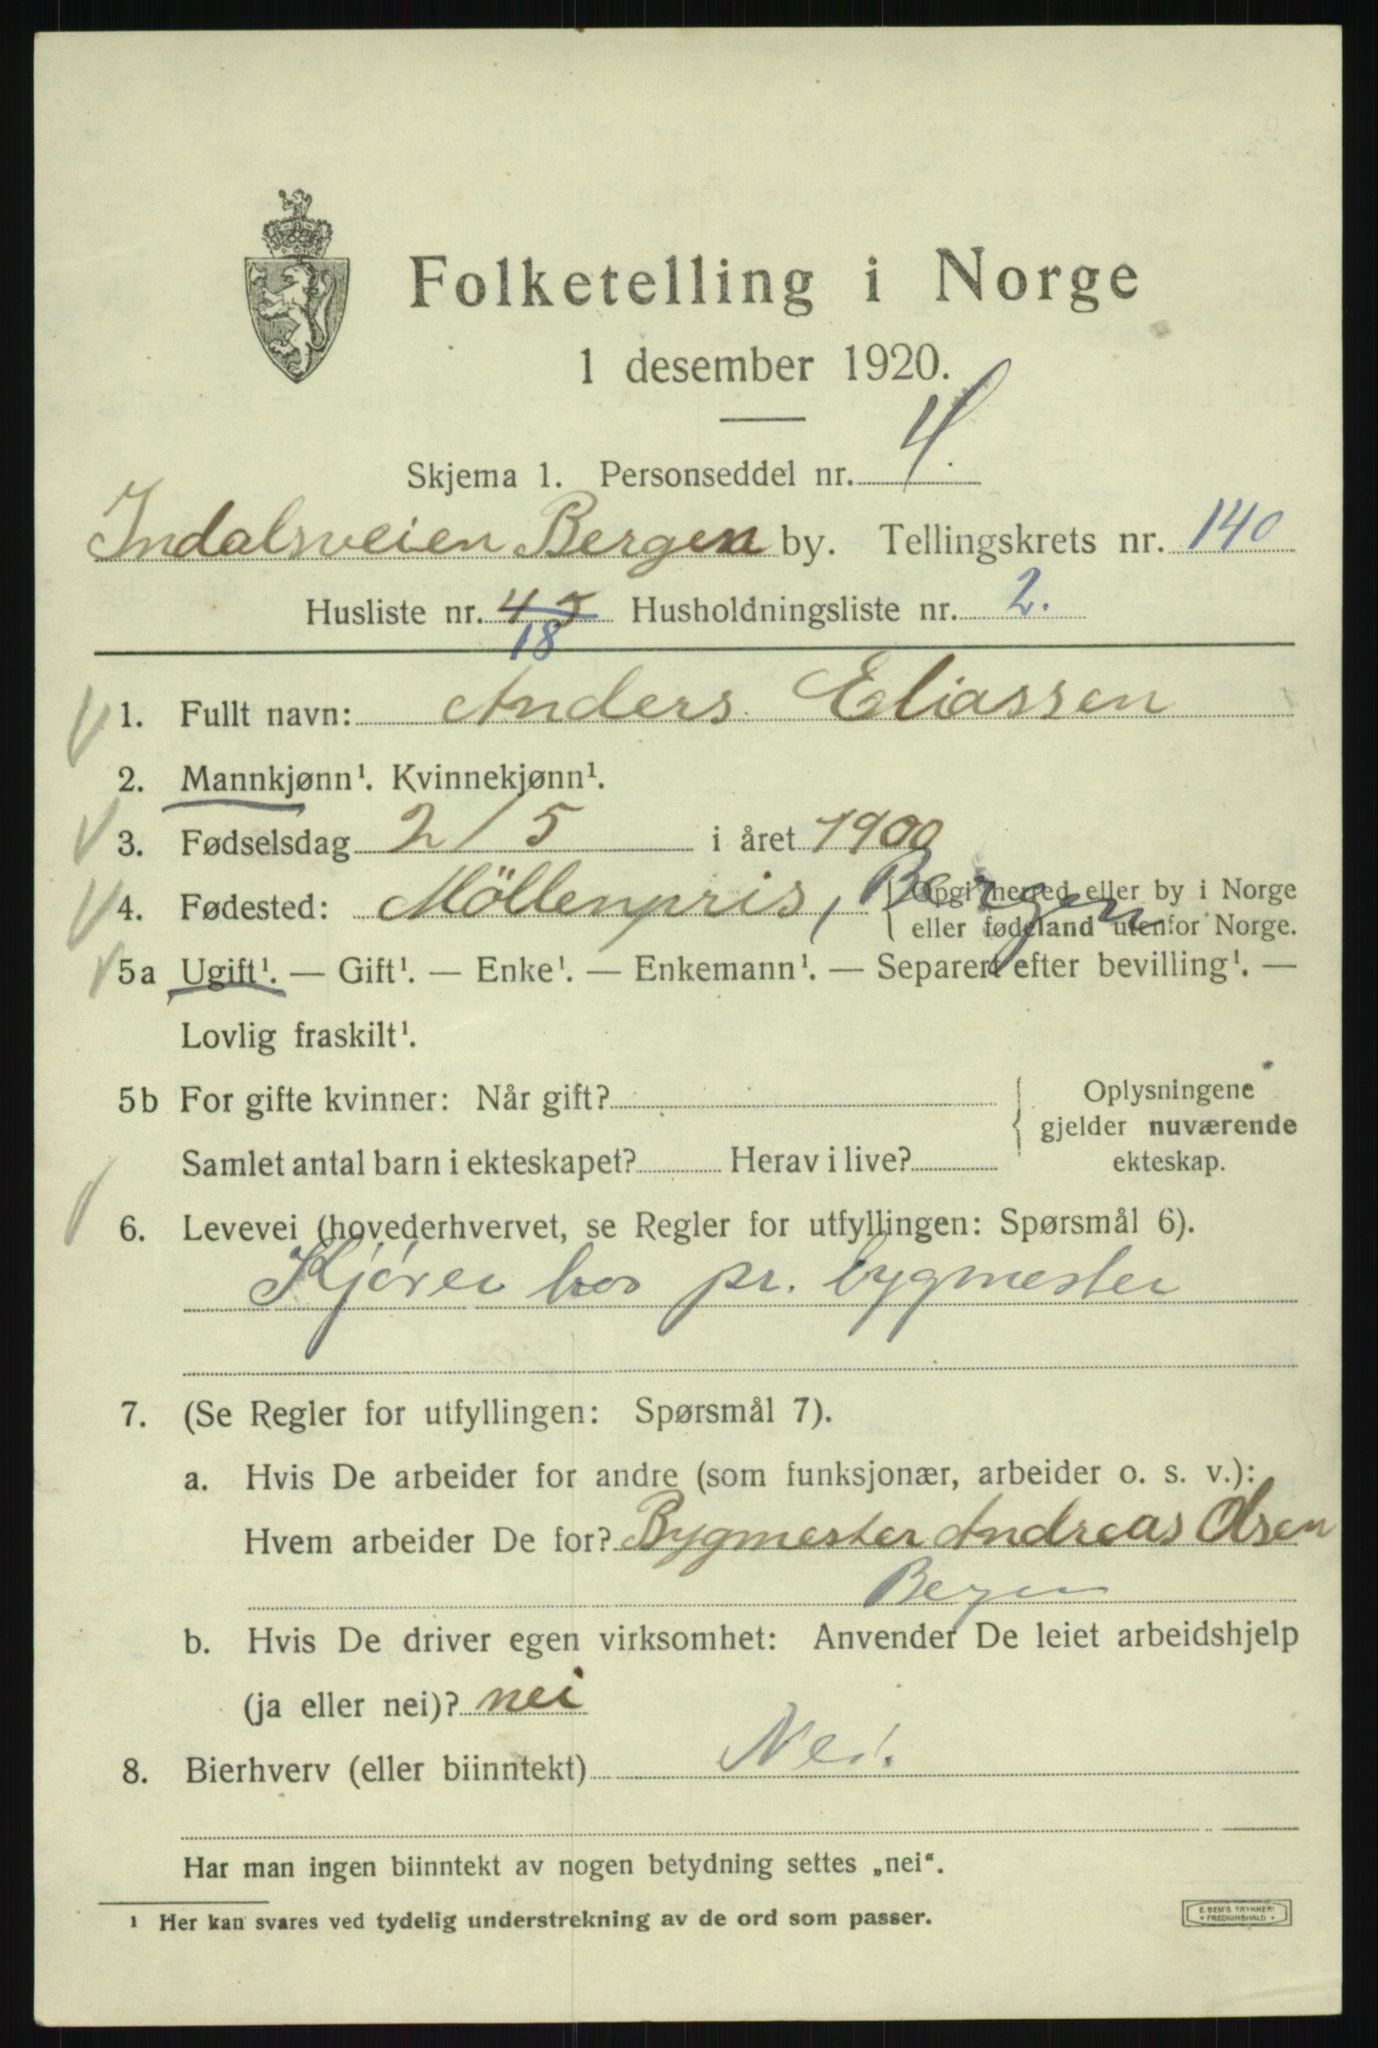 Folketelling i Norge
1 desember 1920.
Skjema 1. Personseddel nr. 4.
Indalsveien Bergen by. Tellingskrets nr. 140
Husliste nr. 45 Husholdningsliste nr. 2.
18
1. Fullt navn: Anders Eliassen
2. Mannkjønn¹. Kvinnekjønn¹.
3. Fødselsdag 2/5 i året 1900
4. Fødested: Möllenpris, Bergen { Opgi herred eller by i Norge
eller fødeland utenfor Norge.
5a Ugift¹. — Gift¹. — Enke¹. — Enkemann¹. — Separert efter bevilling¹. —
Lovlig fraskilt¹.
5b For gifte kvinner: Når gift? { Oplysningene
gjelder nuværende
Samlet antal barn i ekteskapet? Herav i live? ekteskap.
6. Levevei (hovederhvervet, se Regler for utfyllingen: Spørsmål 6).
Kjører hos pr. bygmester
7. (Se Regler for utfyllingen: Spørsmål 7).
a. Hvis De arbeider for andre (som funksjonær, arbeider o. s. v.):
Hvem arbeider De for? Bygmester Andreas Olsen
Bergen
b. Hvis De driver egen virksomhet: Anvender De leiet arbeidshjelp
(ja eller nei)? nei
8. Bierhverv (eller biinntekt) Nei.
Har man ingen biinntekt av nogen betydning settes „nei“.
¹ Her kan svares ved tydelig understrekning av de ord som passer.
E. SEM'S TRYKKERI
FREDRIKSHALD